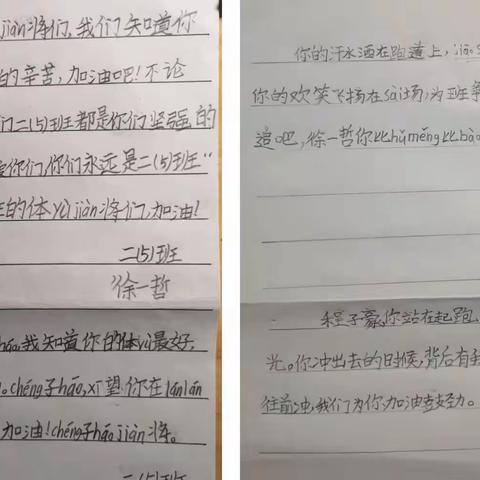 jiàn将们,我们知道你
的辛苦,加油吧!不论
们二(5)班都是你们坚强的
你们,你们永远是二(5)班"
的体yùjiàn将们,加油!
二(5)班
徐一哲
hāo,我知道你的体yù最好,
。chéng子hāo,希望你在lánlán
加油!chéng子hāojiàn将。
二(5)班
你的汗水洒在跑道上,
你的欢笑飞扬在sài场,为班争
追吧,徐一哲你比hǔměng比bào
程子豪,你站在起跑
光。你冲出去的时候,背后有
往前冲,我们为你加油